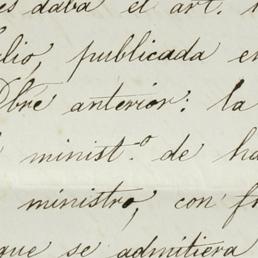 es daba el art.
lio, publicada en
Dbre anterior: la
minist.º de ha
ministro, con f
que se admitiera